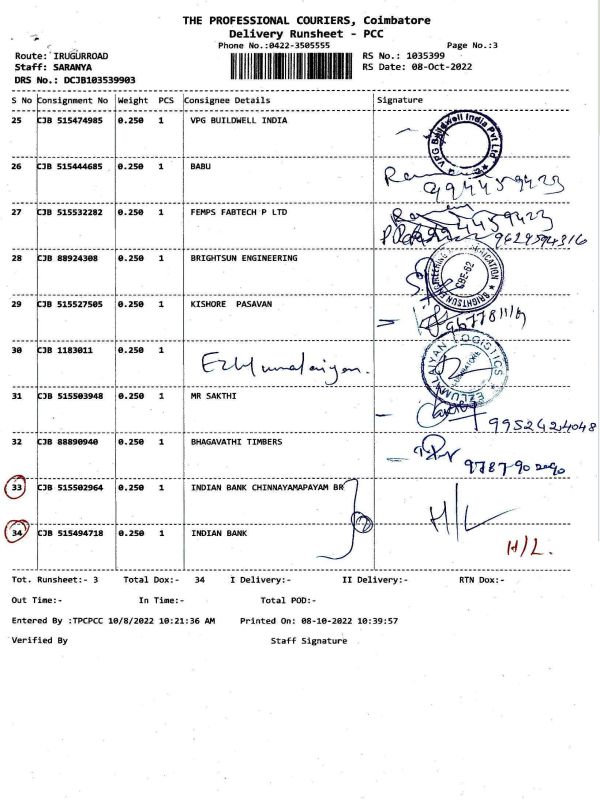 THE PROFESSIONAL COURIERS, Coimbatore
Delivery Runsheet - PCC
Phone No.:0422-3505555 Page No.:3
Route: IRUGURROAD RS No.: 1035399
Staff: SARANYA RS Date: 08-Oct-2022
DRS No.: DCJB103539903
S No Consignment No Weight PCS Consignee Details Signature
25 CJB 515474985 0.250 1 VPG BUILDWELL INDIA
VPG Buildwell India Pvt Ltd
26 CJB 515444685 0.250 1 BABU
9944459423
27 CJB 515532282 0.250 1 FEMPS FABTECH P LTD
9629594316
28 CJB 88924308 0.250 1 BRIGHTSUN ENGINEERING
CBE-62
29 CJB 515527505 0.250 1 KISHORE PASAVAN
30 CJB 1183011 0.250 1 Ezhumalaiyan.
EZLUMALAIYAN LOGISTICS
31 CJB 515503948 0.250 1 MR SAKTHI
9952424048
32 CJB 88890940 0.250 1 BHAGAVATHI TIMBERS
9787902090
33 CJB 515502964 0.250 1 INDIAN BANK CHINNAYAMAPAYAM BR
H/L
34 CJB 515494718 0.250 1 INDIAN BANK
H/L.
Tot. Runsheet:- 3 Total Dox:- 34 I Delivery:- II Delivery:- RTN Dox:-
Out Time:- In Time:- Total POD:-
Entered By :TPCPCC 10/8/2022 10:21:36 AM Printed On: 08-10-2022 10:39:57
Verified By Staff Signature